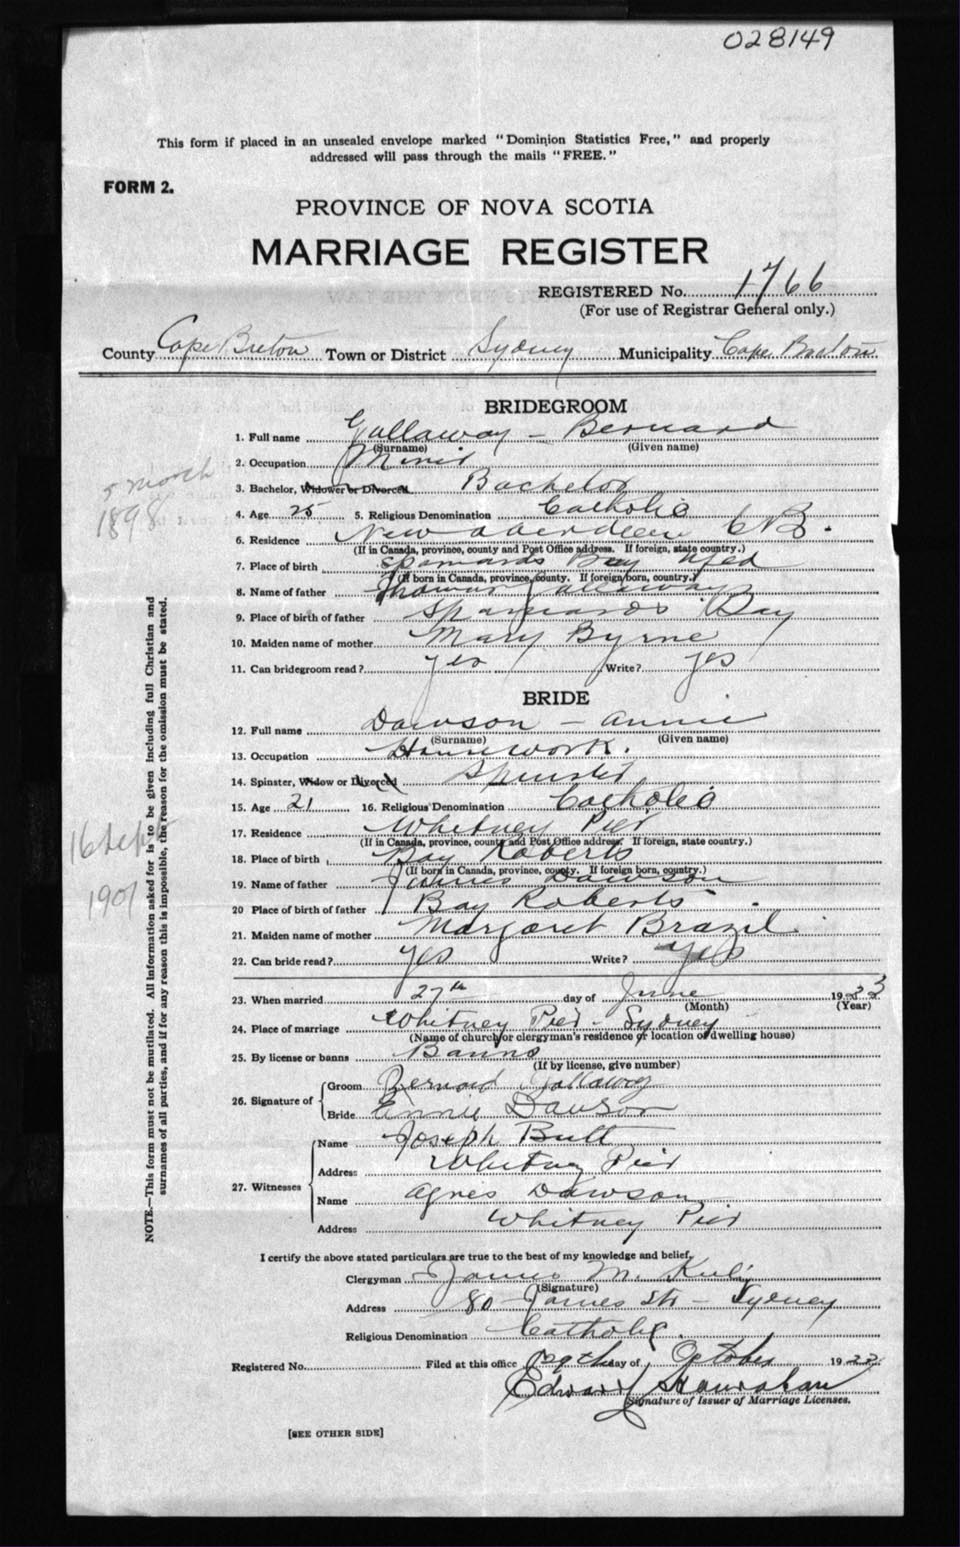 028149
This form if placed in an unsealed envelope marked "Dominion Statistics Free," and properly
addressed will pass through the mails "FREE."
FORM 2.
PROVINCE OF NOVA SCOTIA
MARRIAGE REGISTER
REGISTERED No. 1766
(For use of Registrar General only.)
County Cape Breton Town or District Sydney Municipality Cape Breton
BRIDEGROOM
1. Full name Gallaway - Bernard
(Surname) (Given name)
2. Occupation Miner
3. Bachelor, Widower or Divorced Bachelor
4. Age 25 5. Religious Denomination Catholic
6. Residence New Aberdeen C B.
(If in Canada, province, county and Post Office address. If foreign, state country.)
7. Place of birth Spaniards Bay Nfld
(If born in Canada, province, county. If foreign born, country.)
8. Name of father Thomas Gallaway
9. Place of birth of father Spaniards Bay
10. Maiden name of mother Mary Byrne
11. Can bridegroom read? yes Write? yes
5 March
1898
BRIDE
12. Full name Dawson - Annie
(Surname) (Given name)
13. Occupation Housework.
14. Spinster, Widow or Divorced Spinster
15. Age 21 16. Religious Denomination Catholic
17. Residence Whitney Pier
(If in Canada, province, county and Post Office address. If foreign, state country.)
18. Place of birth Bay Roberts
(If born in Canada, province, county. If foreign born, country.)
19. Name of father James Dawson
20 Place of birth of father Bay Roberts
21. Maiden name of mother Margaret Brazil
22. Can bride read? yes Write? yes
16 Sept
1901
23. When married 27th day of June 19 23
(Month) (Year)
24. Place of marriage Whitney Pier - Sydney
(Name of church or clergyman's residence or location of dwelling house)
25. By license or banns Banns
(If by license, give number)
26. Signature of Groom Bernard Gallaway
Bride Annie Dawson
27. Witnesses
Name Joseph Butt
Address Whitney Pier
Name Agnes Dawson
Address Whitney Pier
I certify the above stated particulars are true to the best of my knowledge and belief.
Clergyman James M.
(Signature)
Address 80 James Str - Sydney
Religious Denomination Catholic.
Registered No. Filed at this office 29th day of October 19
Edward Hanrahan
Signature of Issuer of Marriage Licenses.
[SEE OTHER SIDE]
NOTE.—This form must not be mutilated. All information asked for is to be given including full Christian and
surnames of all parties, and if for any reason this is impossible, the reason for the omission must be stated.